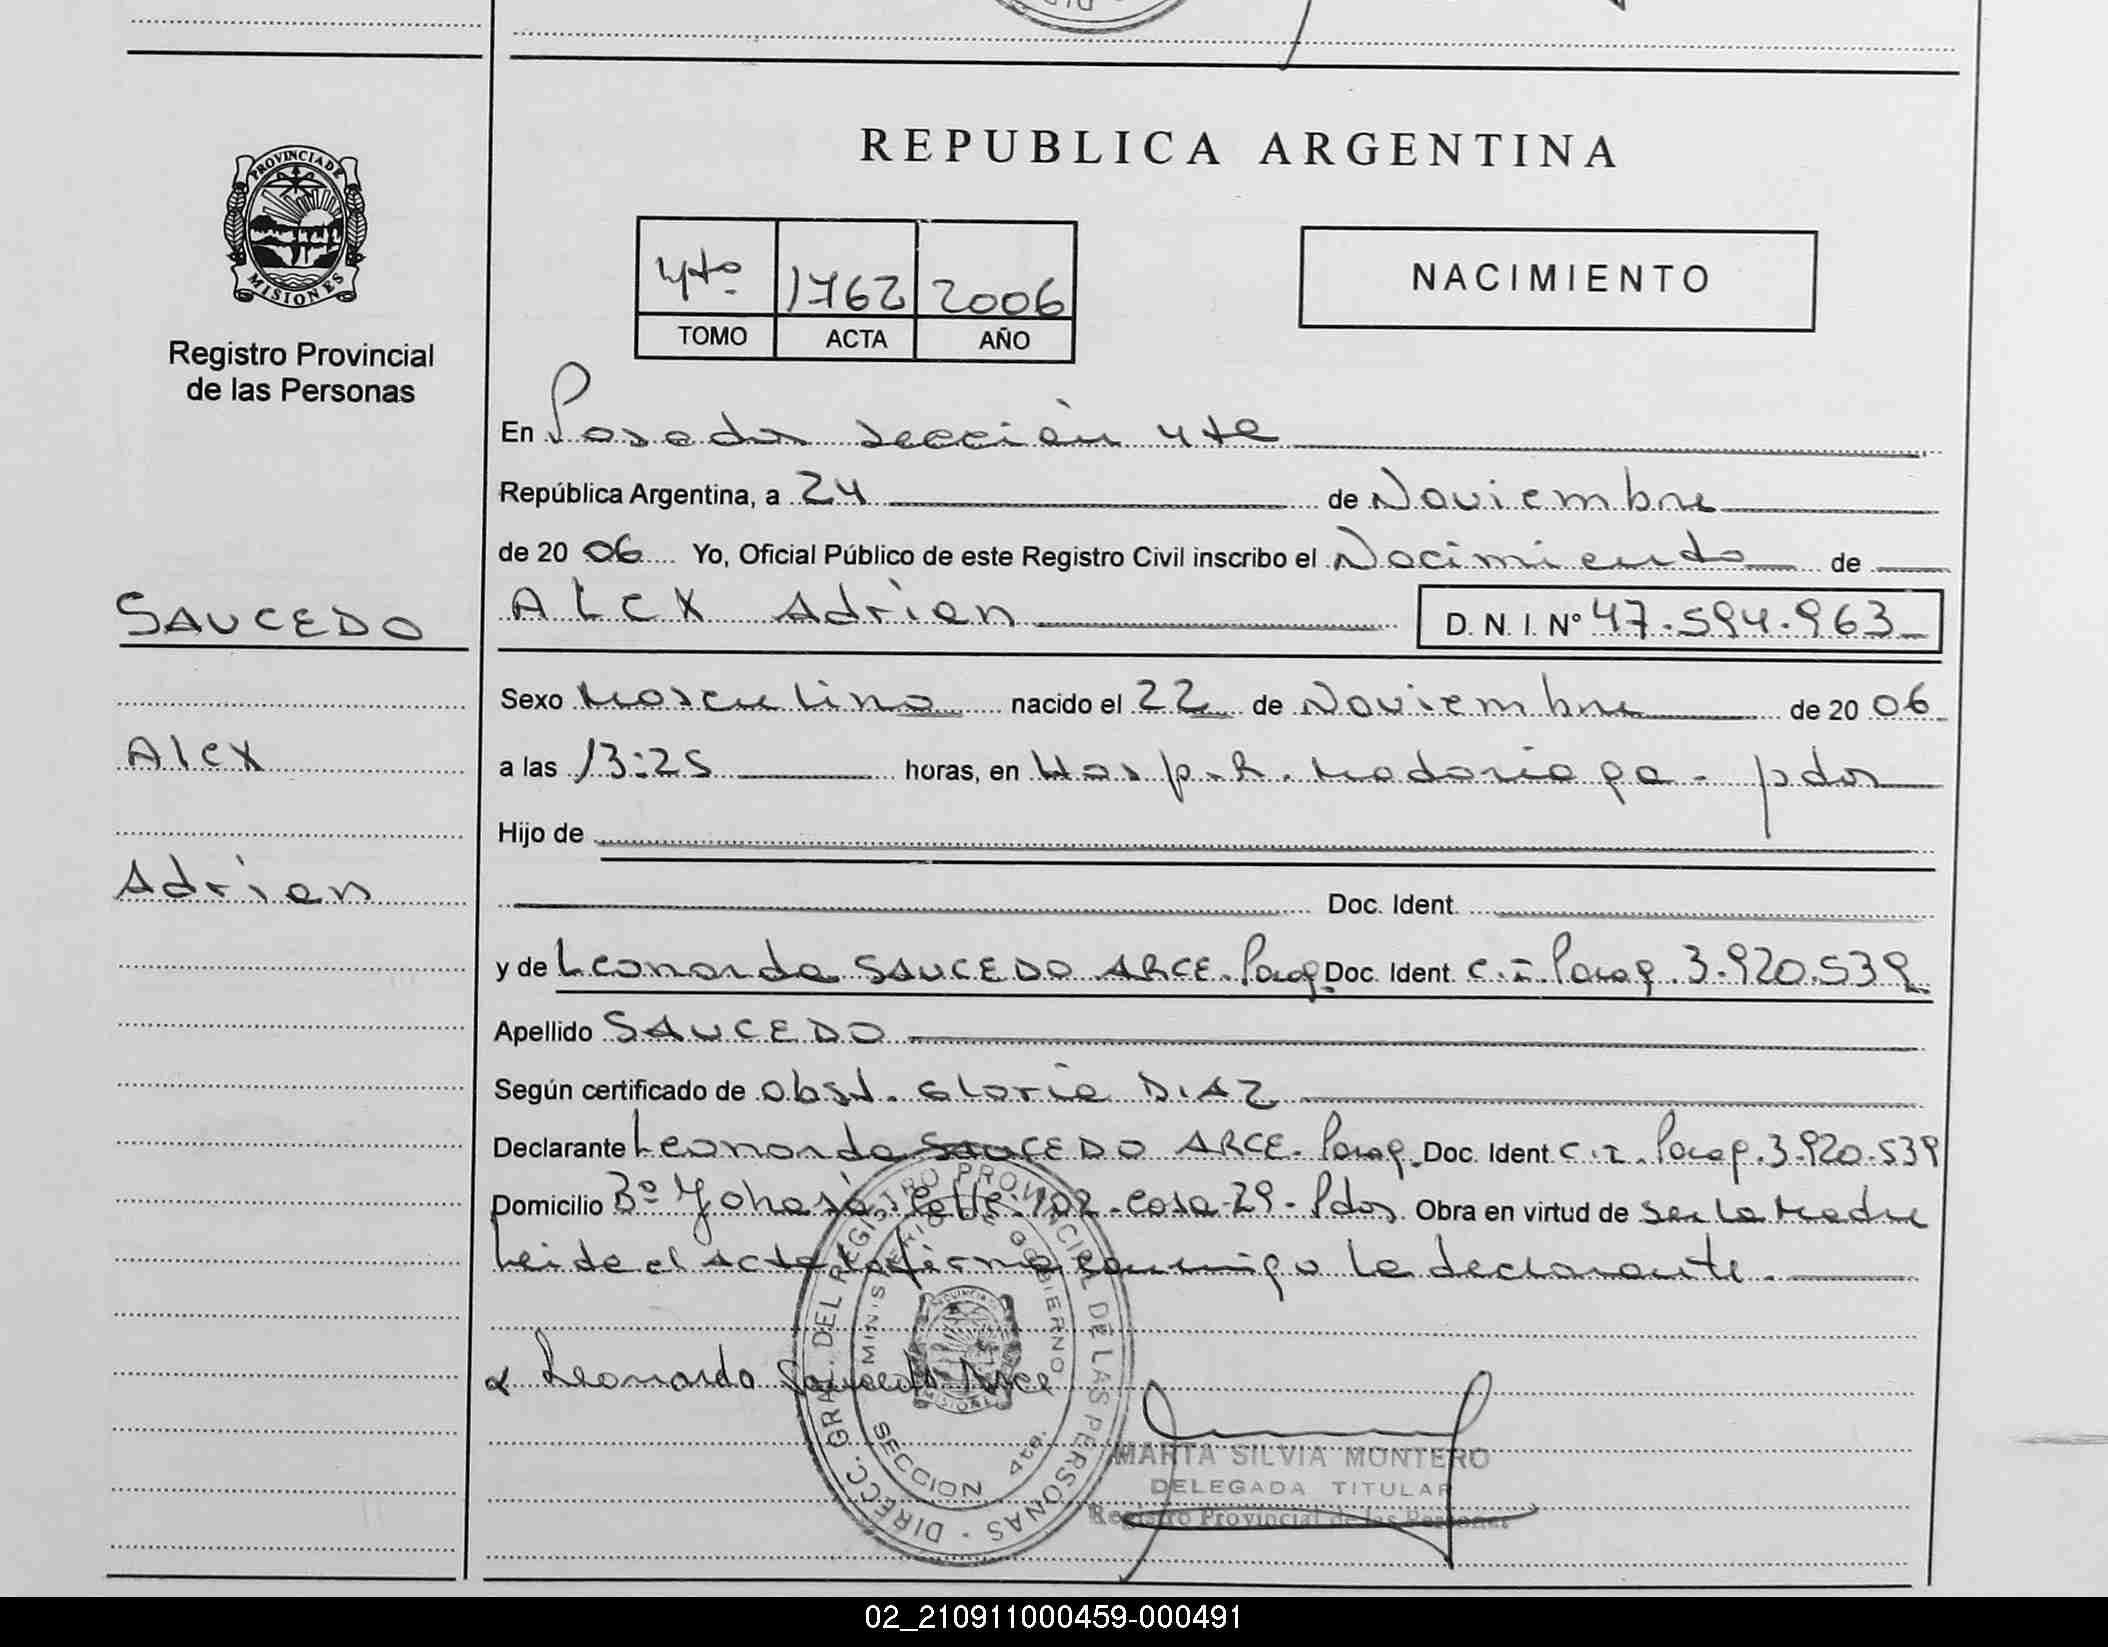 REPUBLICA ARGENTINA
PROVINCIA DE MISIONES
Registro Provincial
de las Personas
4to 1762 2006
TOMO ACTA AÑO
NACIMIENTO
En Posadas sección 4ta
República Argentina, a 24 de Noviembre
de 20 06 Yo, Oficial Público de este Registro Civil inscribo el Nacimiento de
ALEX Adrian D. N. I. Nº 47.594.963
SAUCEDO
Alex
Adrian
Sexo Masculino nacido el 22 de Noviembre de 20 06
a las 13:25 horas, en Hosp. R. Madariaga - pdas
Hijo de
Doc. Ident.
y de Leonarda SAUCEDO ARCE. Parag. Doc. Ident. C.I. Parag. 3.920.539
Apellido SAUCEDO
Según certificado de Obst. Gloria DIAZ
Declarante Leonarda SAUCEDO ARCE. Parag. Doc. Ident C.I. Parag. 3.920.539
Domicilio Bº Yohasá Calle: 102 - casa - 29 - Pdas Obra en virtud de ser la Madre
Leida el acta la firma conmigo la declarante.
Leonarda Saucedo Arce
DIRECC. GRAL. DEL REGISTRO PROVINCIAL DE LAS PERSONAS
MINISTERIO DE GOBIERNO
PROVINCIA DE MISIONES
SECCION 4ta.
MARTA SILVIA MONTERO
DELEGADA TITULAR
Registro Provincial de las Personas
02_210911000459-000491